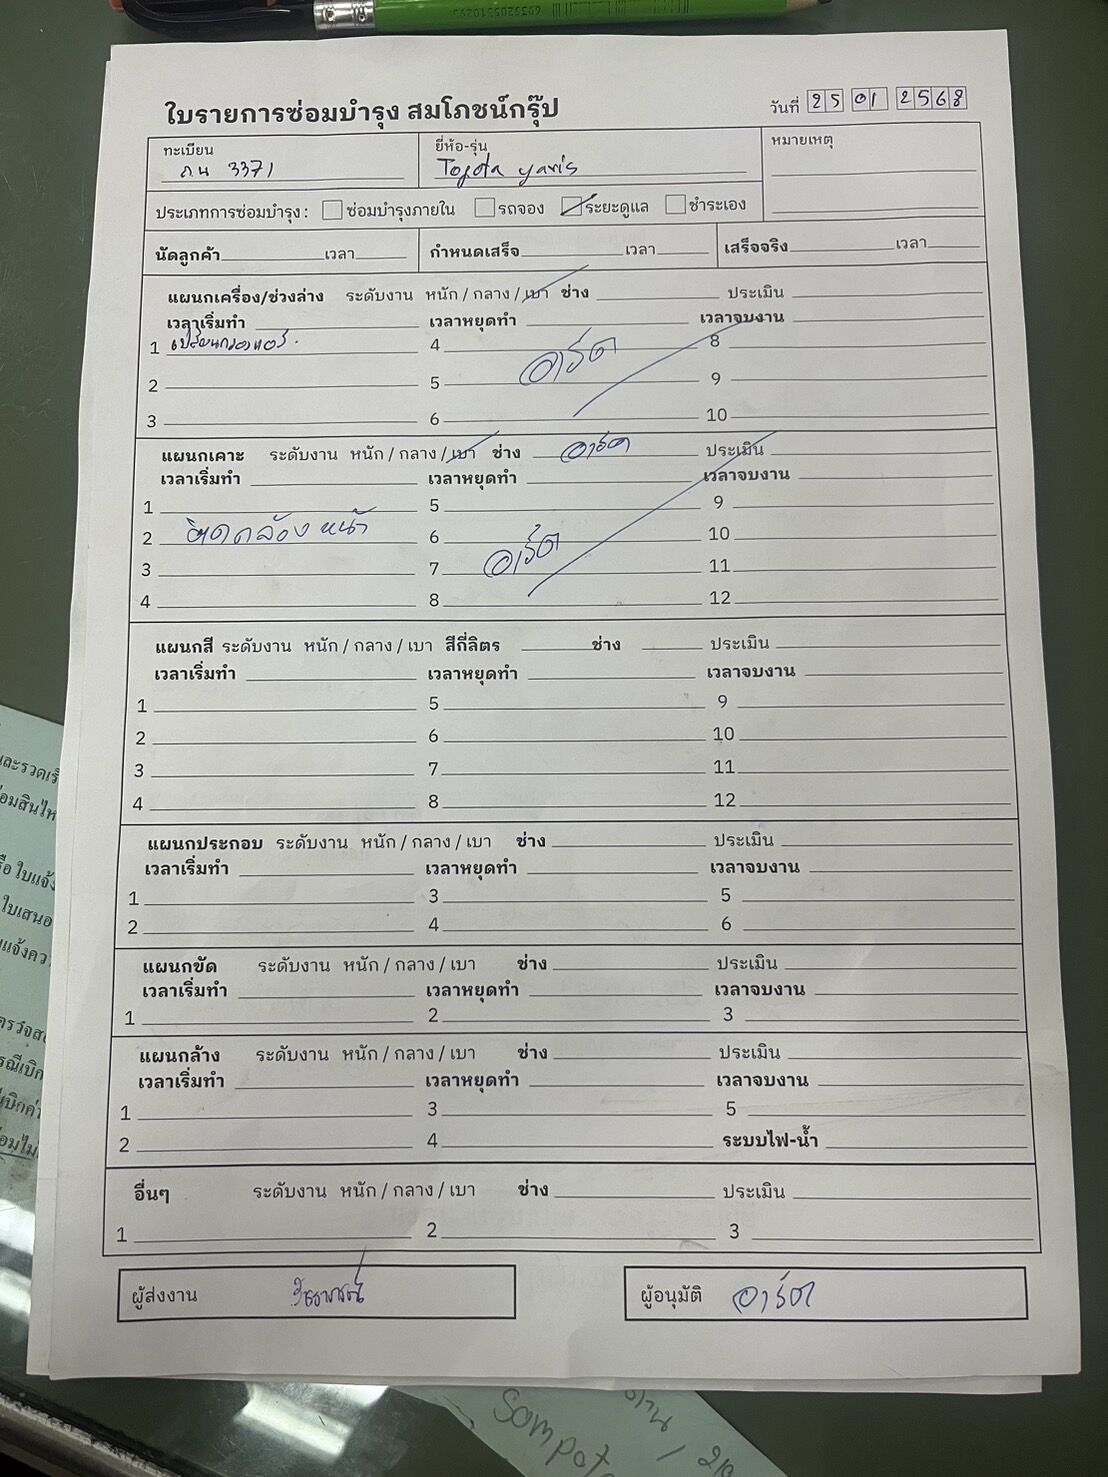 ใบรายการซ่อมบำรุง สมโภชน์กรุ๊ป
วันที่ 25 01 2568
ทะเบียน
ถน 3371
ยี่ห้อ-รุ่น
Toyota yaris
หมายเหตุ
ประเภทการซ่อมบำรุง: ซ่อมบำรุงภายใน รถจอง ระยะดูแล ชำระเอง
นัดลูกค้า เวลา กำหนดเสร็จ เวลา เสร็จจริง เวลา
แผนกเครื่อง/ช่วงล่าง ระดับงาน หนัก / กลาง / เบา ช่าง ประเมิน
เวลาเริ่มทำ เวลาหยุดทำ เวลาจบงาน
1 เปลี่ยนกรองแอร์. 4 อาร์ต 8
2 5 9
3 6 10
แผนกเคาะ ระดับงาน หนัก / กลาง / เบา ช่าง อาร์ต ประเมิน
เวลาเริ่มทำ เวลาหยุดทำ เวลาจบงาน
1 5 9
2 ติดกล้องหน้า 6 10
3 7 อาร์ต 11
4 8 12
แผนกสี ระดับงาน หนัก / กลาง / เบา สีกี่ลิตร ช่าง ประเมิน
เวลาเริ่มทำ เวลาหยุดทำ เวลาจบงาน
1 5 9
2 6 10
3 7 11
4 8 12
แผนกประกอบ ระดับงาน หนัก / กลาง / เบา ช่าง ประเมิน
เวลาเริ่มทำ เวลาหยุดทำ เวลาจบงาน
1 3 5
2 4 6
แผนกขัด ระดับงาน หนัก / กลาง / เบา ช่าง ประเมิน
เวลาเริ่มทำ เวลาหยุดทำ เวลาจบงาน
1 2 3
แผนกล้าง ระดับงาน หนัก / กลาง / เบา ช่าง ประเมิน
เวลาเริ่มทำ เวลาหยุดทำ เวลาจบงาน
1 3 5
2 4 ระบบไฟ-น้ำ
อื่นๆ ระดับงาน หนัก / กลาง / เบา ช่าง ประเมิน
1 2 3
ผู้ส่งงาน
ผู้อนุมัติ อาร์ต